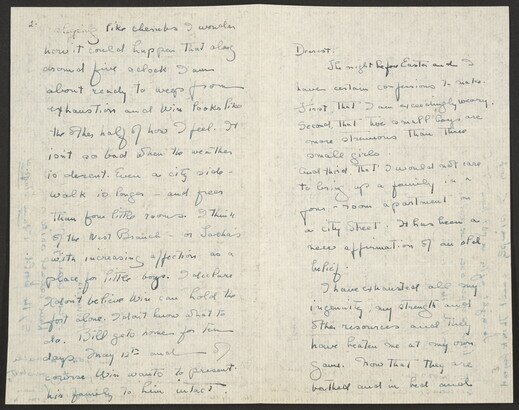 Dearest:
The night before Easter and I
have certain confessions to make.
First, that I am exceedingly weary.
Second that two small boys are
more strenuous than three
small girls
And third, that I would not care
to bring up a family in a
four-room apartment on
a city street. It has been a
new affirmation of an old
belief.
I have exhausted all my
ingenuity, my strength and
other resources and they
have beaten me at my own
game. Now that they are
bathed and in bed and
2.
like cherubs I wonder
how it could happen that along
around five o'clock I am
about ready to weep from
exhaustion and Win looks like
the other half of how I feel. It
isn't so bad when the weather
is decent. Even a city side-
walk is longer - and freer
than four little rooms. I think
of the West Branch - or
with increasing affection as a
place for little boys. I declare
I don't believe Win can hold the
fort alone. I don't know what to
do. Bill gets home for ten
days May 12th and of
course Win wants to present
his family to him intact.